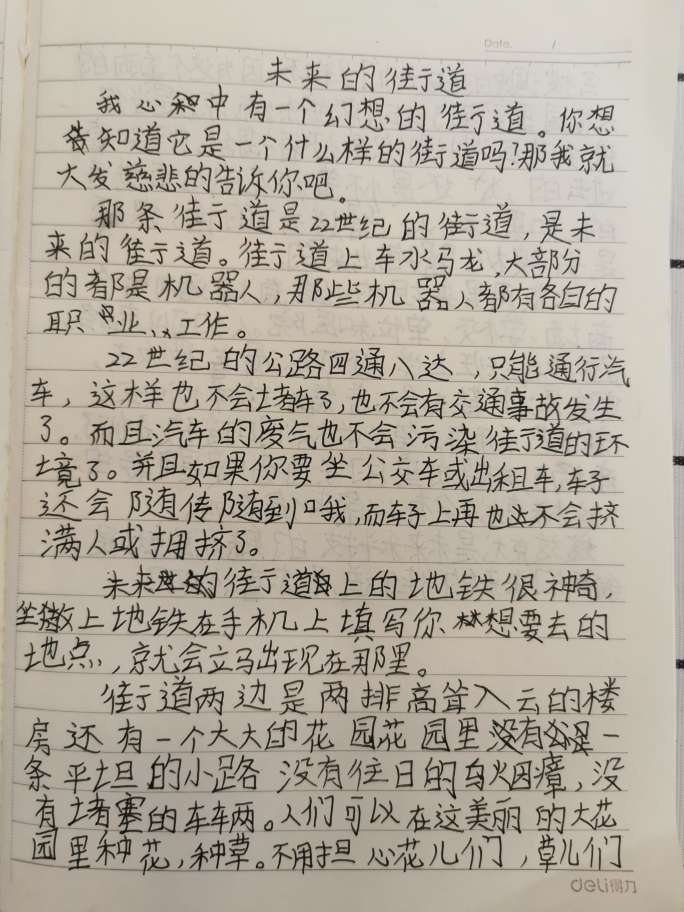 Date. /
未来的街道
我心中有一个幻想的街道。你想
知道它是一个什么样的街道吗?那我就
大发慈悲的告诉你吧。
那条街道是22世纪的街道，是未
来的街道。街道上车水马龙,大部分
的都是机器人,那些机器人都有各自的
职业、工作。
22世纪的公路四通八达，只能通行汽
车，这样也不会堵车了,也不会有交通事故发生
了。而且汽车的废气也不会污染街道的环
境了。并且如果你要坐公交车或出租车,车子
还会随传随到哦,而车子上再也不会挤
满人或拥挤了。
未来的街道上的地铁很神奇，
坐上地铁在手机上填写你想要去的
地点，就会立马出现在那里。
街道两边是两排高耸入云的楼
房还有一个大大的花园花园里没有是一
条平坦的小路没有往日的乌烟瘴，没
有堵塞的车车两。人们可以在这美丽的大花
园里种花,种草。不用担心花儿们,草儿们
deli得力